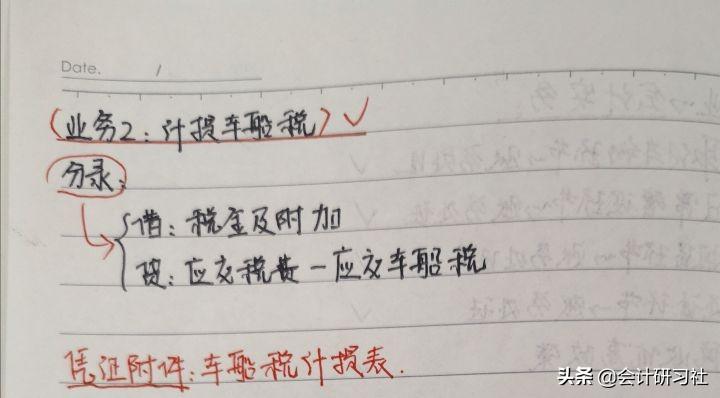 Date. /
(业务2:计损车船税)✓
分录:
借:税金及附加
贷:应交税费-应交车船税
凭证附件:车船税计损表.
头条 @会计研习社